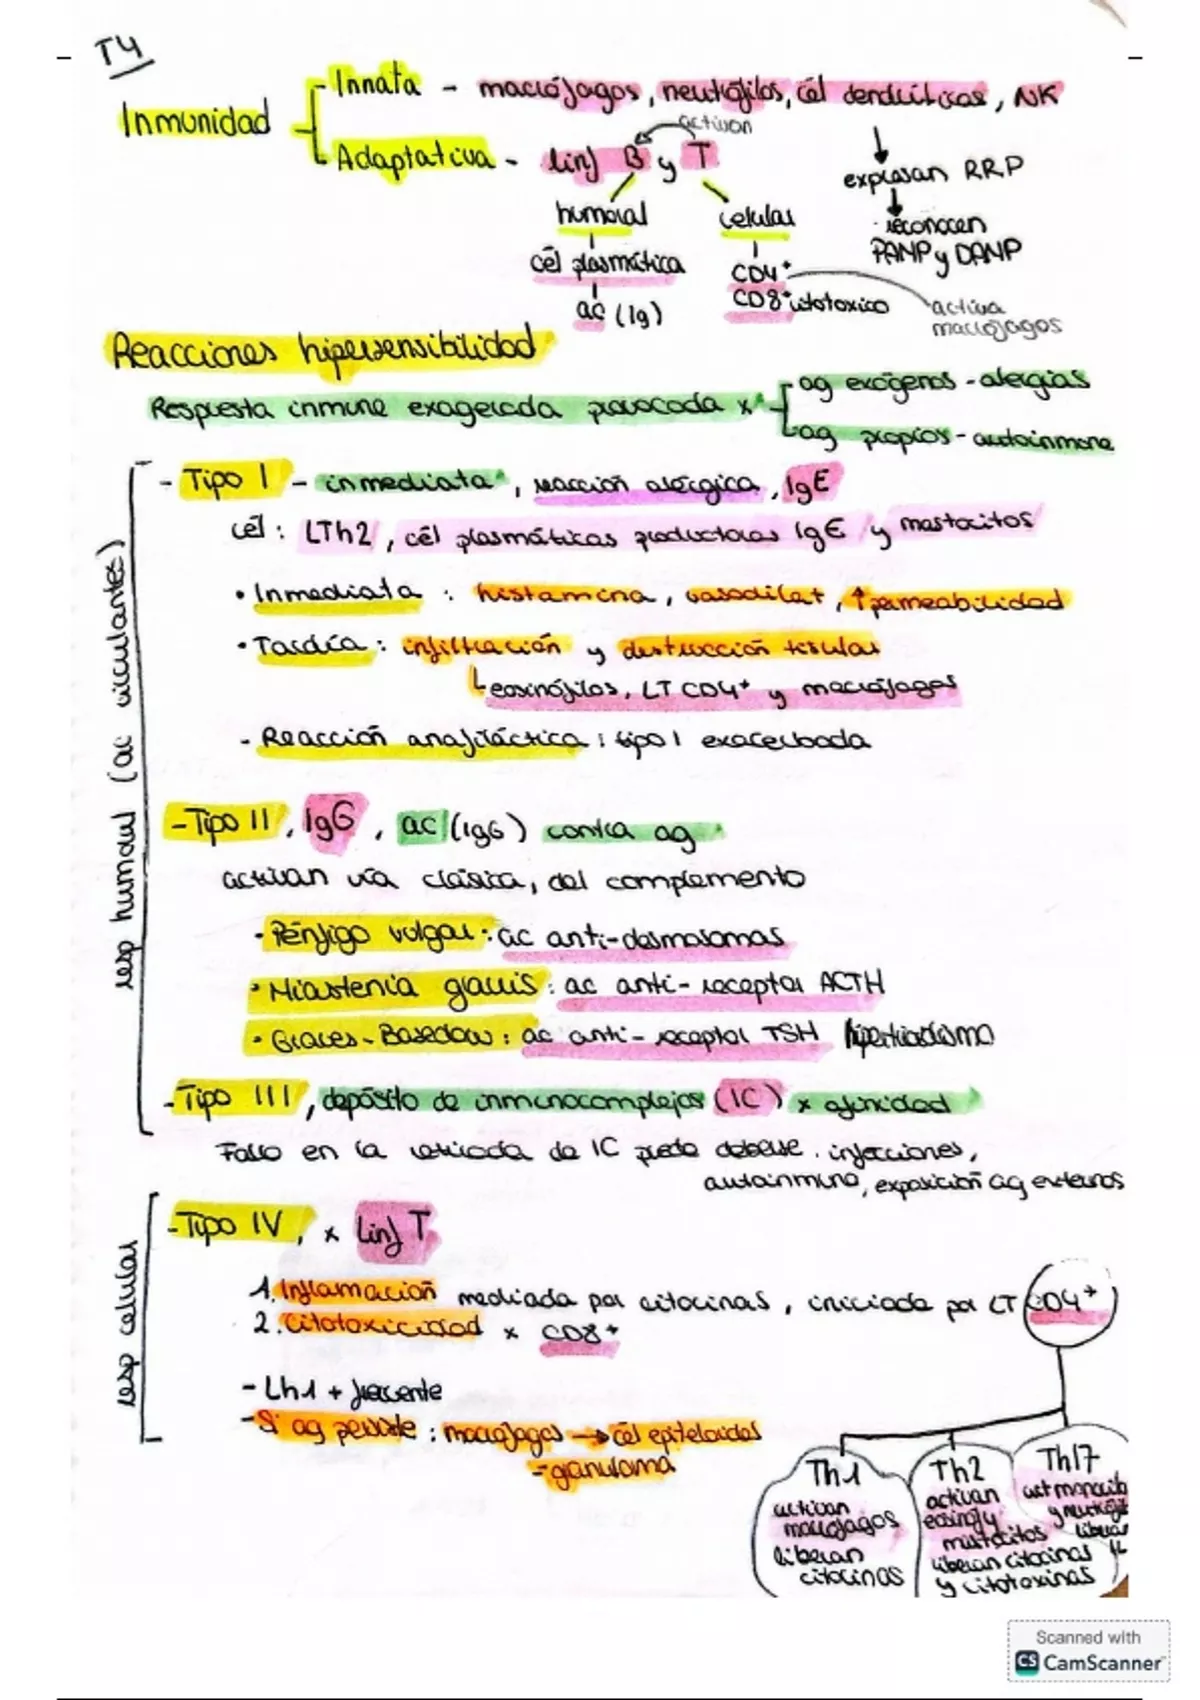 T4
Inmunidad
- Innata - macrófagos, neutrófilos, cél dendríticas, NK
activan
- Adaptativa - linf B y T
expresan RRP
humoral
celular
reconocen
PAMP y DAMP
cél plasmática
CD4+
ac (Ig)
CD8+ citotoxico
activa
macrófagos
Reacciones hipersensibilidad
Respuesta inmune exagerada provocada x
ag exógenos - alergias
ag propios - autoinmune
resp humoral (ac circulantes)
- Tipo I - inmediata, reacción alérgica, IgE
cél: LTh2, cél plasmáticas productoras IgE y mastocitos
• Inmediata: histamina, vasodilat, ↑permeabilidad
• Tardía: infiltración y destrucción tisular
eosinófilos, LT CD4+ y macrófagos
- Reacción anafiláctica: tipo I exacerbada
- Tipo II, IgG, ac (IgG) contra ag
activan vía clásica, del complemento
· Pénfigo vulgar: ac anti-desmosomas
• Miastenia gravis: ac anti-receptor ACTH
· Graves-Basedow: ac anti-receptor TSH hipertiroidismo
- Tipo III, depósito de inmunocomplejos (IC) x afinidad
Fallo en la retirada de IC puede deberse. infecciones,
autoinmuno, exposición ag externos
resp celular
- Tipo IV, x Linf T
1. Inflamación mediada por citocinas, iniciada por LT CD4+
2. Citotoxicidad x CD8+
- Lh1 + frecuente
- Si ag persiste: macrófagos → cél epiteloides
- granuloma
Th1
activan
macrófagos
liberan
citocinas
Th2
activan
eosinof y
mastocitos
liberan citocinas
y citotoxinas
Th17
act monocito
y neutrófil
liberan
IL
Scanned with
CS CamScanner